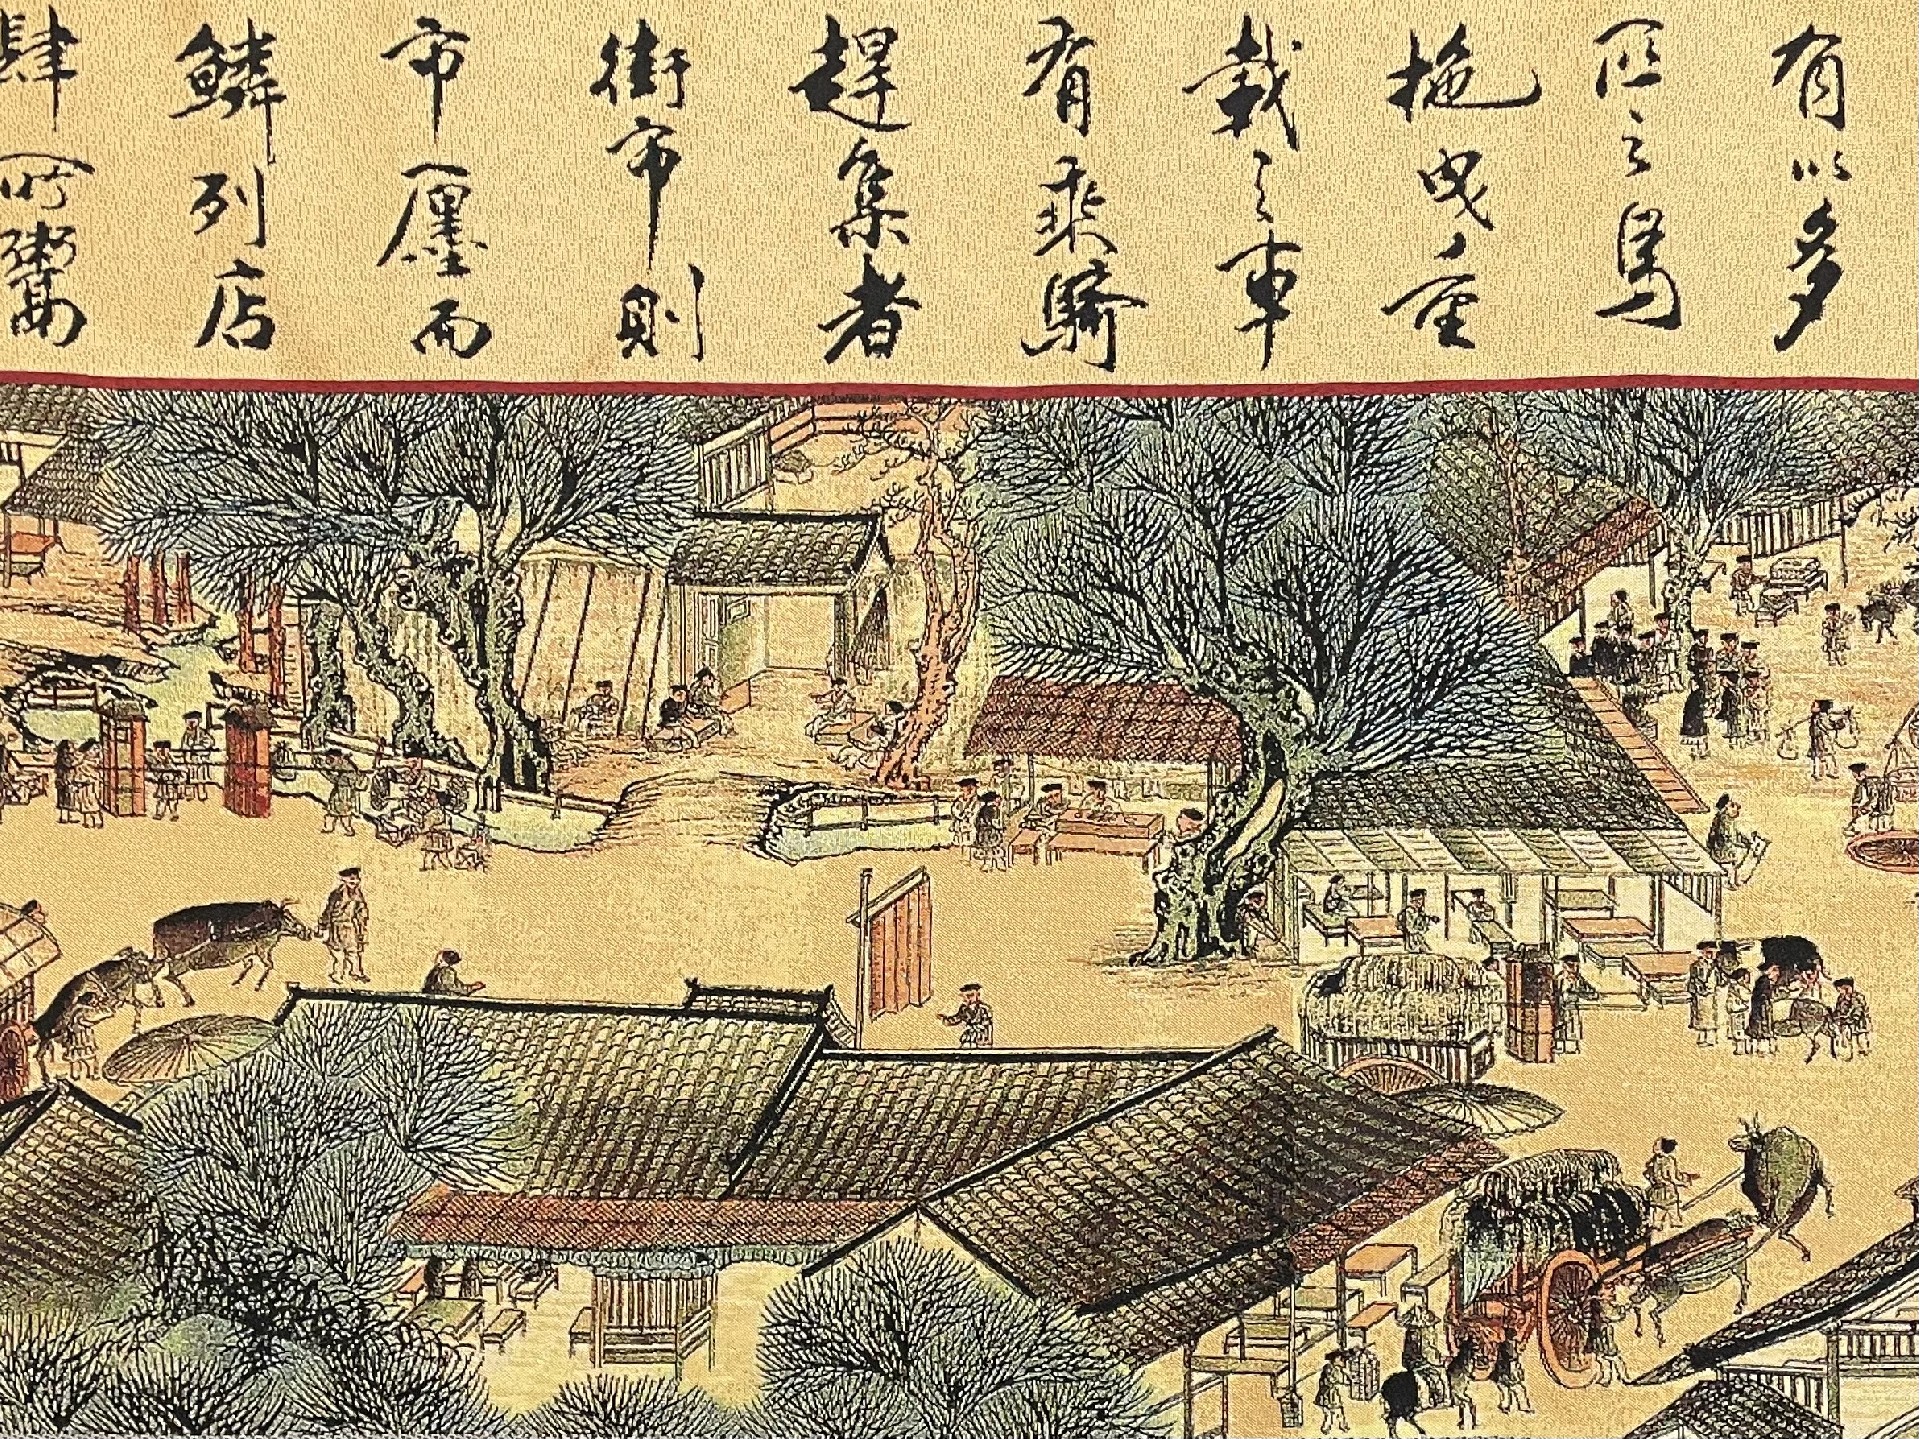 有以多
匹之馬
拖曳重
載之車
有乘騎
趕集者
街市則
市厘而
鱗列店
肆所鬻